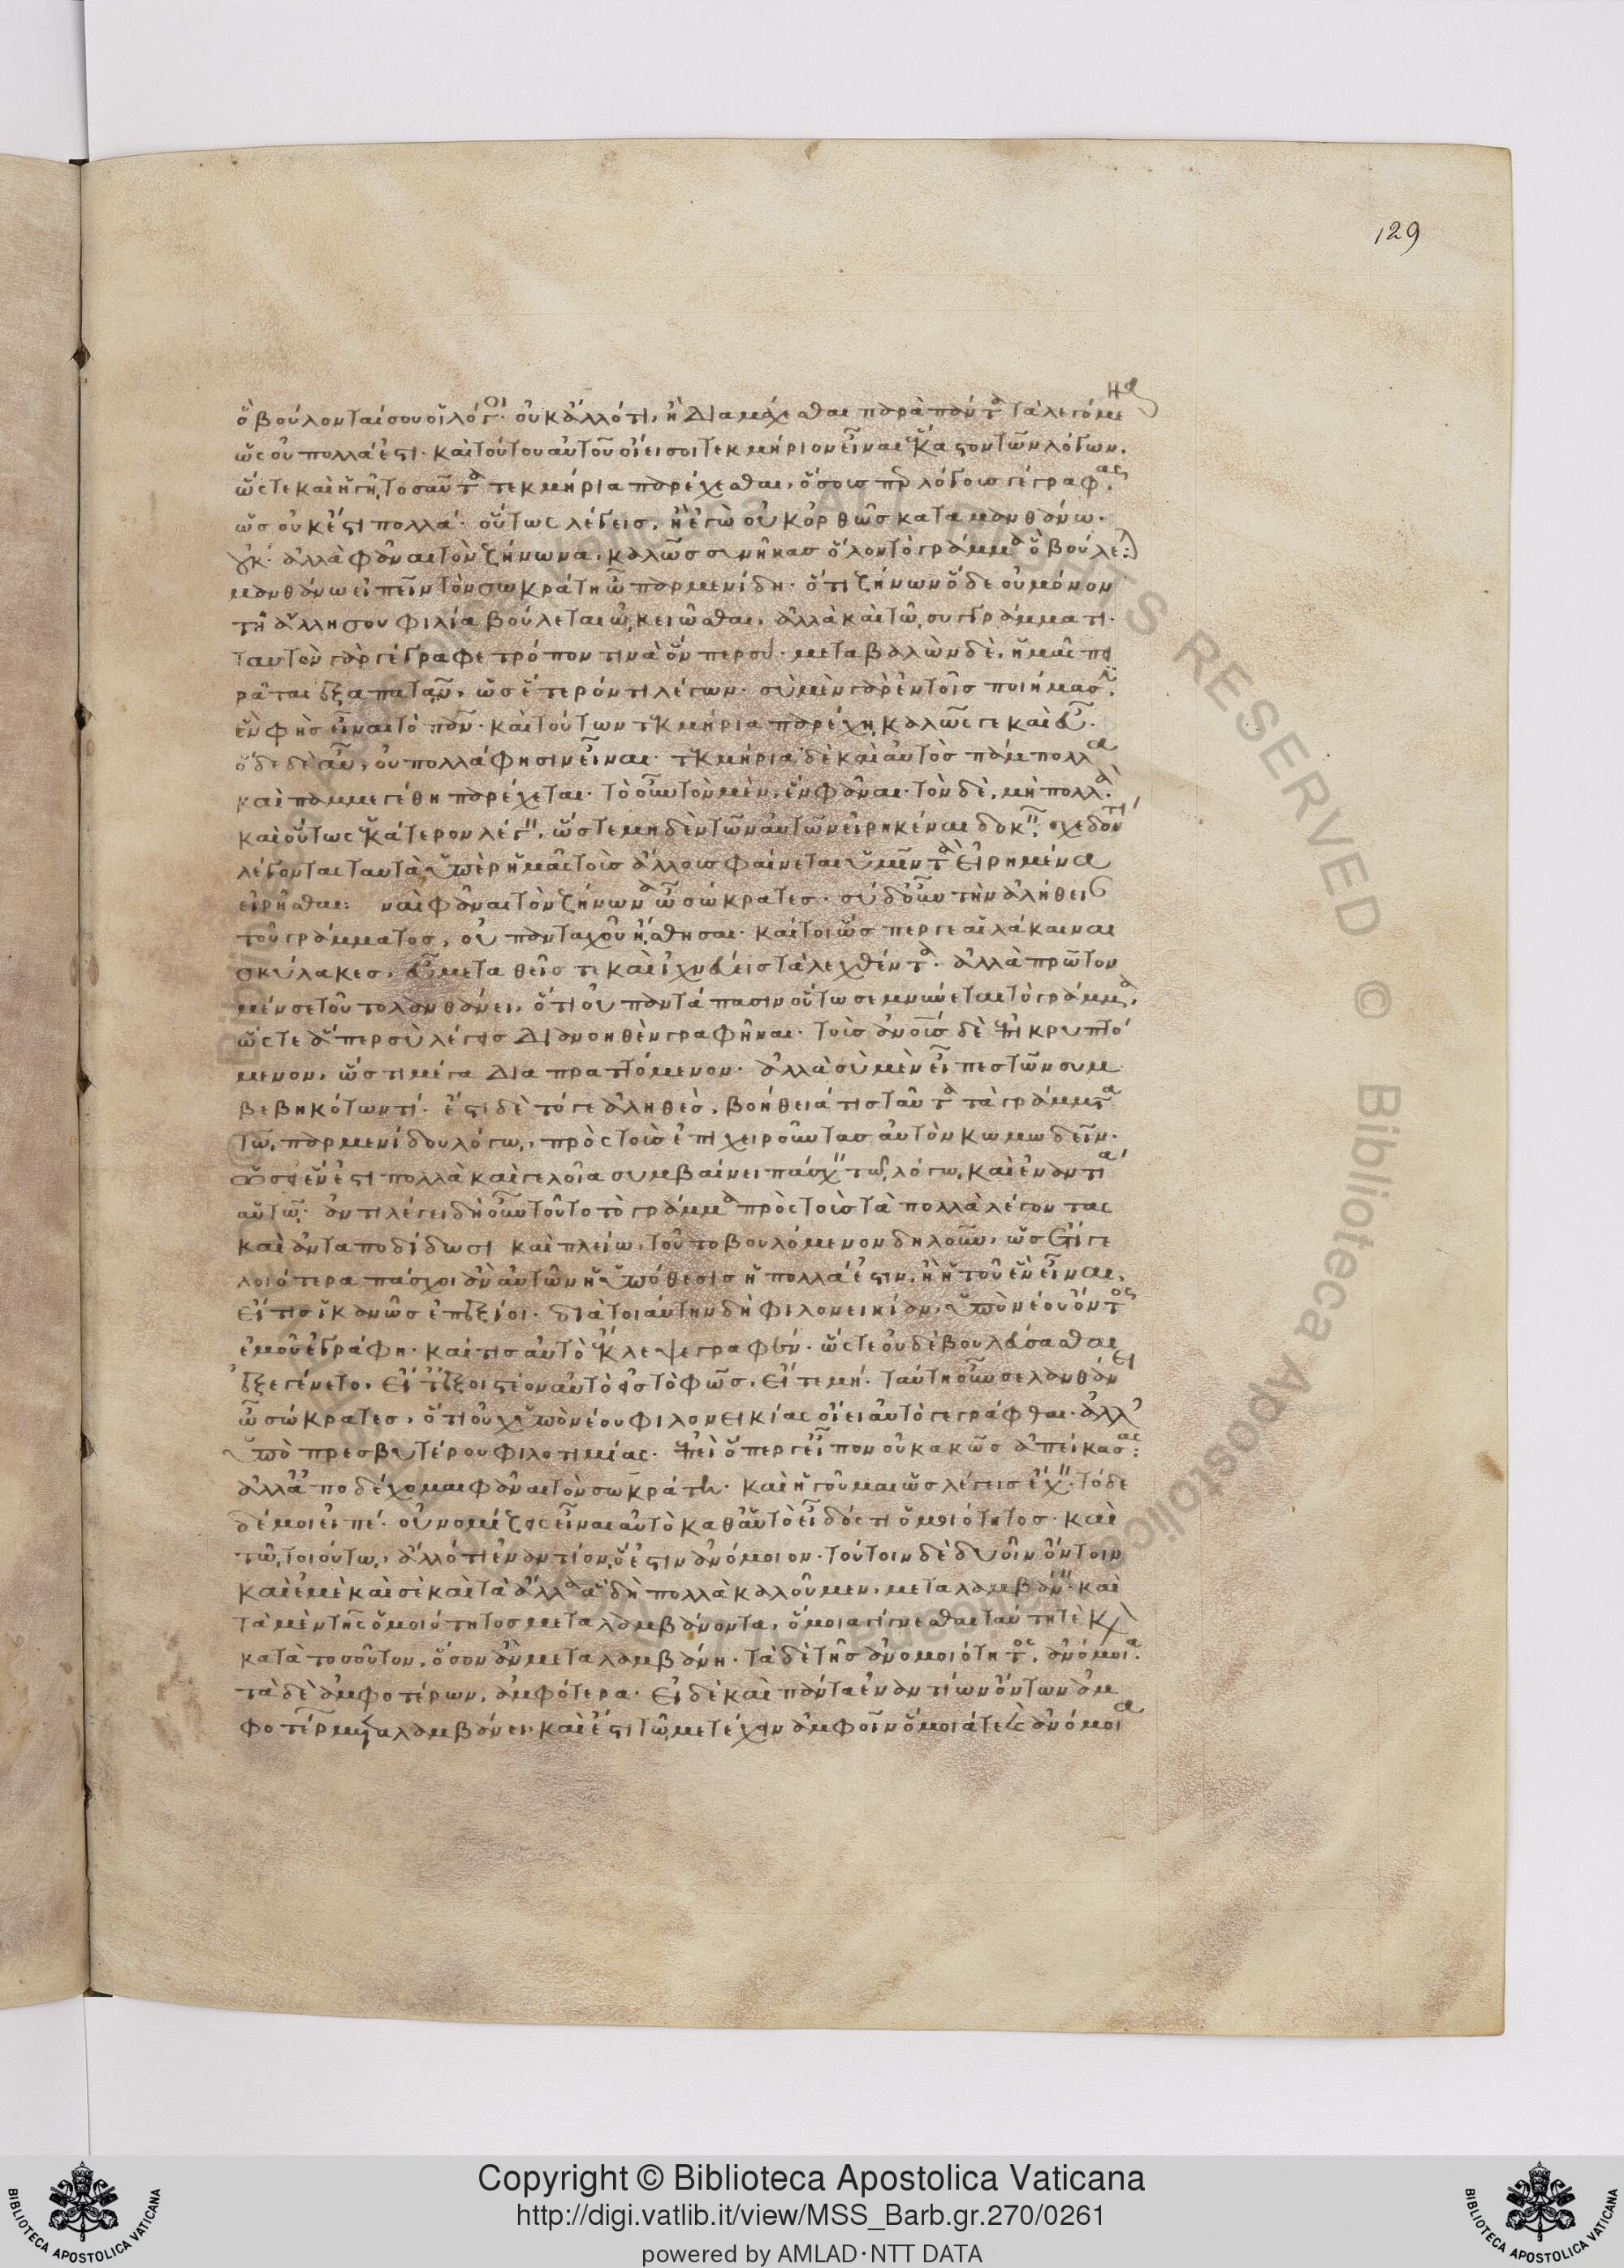 129
ὃ βούλονταί σου οἱ λόγοι· οὐκ ἄλλό τι, ἢ διαμάχεσθαι παρὰ πάντα τὰ λεγόμενα
ὡς οὐ πολλά ἐστι· καὶ τούτου αὐτοῦ οἴει σοι τεκμήριον εἶναι ἕκαστον τῶν λόγων.
ὥστε καὶ ἡγῆ, τοσαῦτα τεκμήρια παρέχεσθαι, ὅσους περ λόγους γέγραφας
ὡς οὐκ ἔστι πολλά· οὕτως λέγεις, ἢ ἐγὼ οὐκ ὀρθῶς καταμανθάνω.
οὔκ· ἀλλὰ φάναι τὸν ζήνωνα, καλῶς συνῆκας ὅλον τὸ γράμμα ὃ βούλεται:
μανθάνω εἰπεῖν τὸν σωκράτη ὦ παρμενίδη· ὅτι ζήνων ὅδε οὐ μόνον
τῆ ἄλλη σου φιλία βούλεται ὠκειῶσθαι, ἀλλὰ καὶ τῶ συγγράμματι·
ταυτὸν γὰρ γέγραφε τρόπον τινὰ ὅνπερ σύ· μεταβαλὼν δὲ, ἡμᾶς πει
ρᾶται ἐξαπατᾶν, ὡς ἕτερόν τι λέγων· σὺ μὲν γὰρ ἐν τοῖς ποιήμασιν
ἓν φῂς εἶναι τὸ πᾶν· καὶ τούτων τεκμήρια παρέχη καλῶς τε καὶ εὖ.
ὅδε δὲ αὖ, οὐ πολλά φησιν εἶναι· τεκμήρια δὲ καὶ αὐτὸς πάμπολλα
καὶ παμμεγέθη παρέχεται· τὸ οὖν τὸν μὲν, ἓν φάναι· τὸν δὲ, μὴ πολλά.
καὶ οὕτως ἑκάτερον λέγειν, ὥστε μηδὲν τῶν αὐτῶν εἰρηκέναι δοκεῖν, σχεδόν τι
λέγοντας ταυτὰ ὑπὲρ ἡμᾶς τοὺς ἄλλους φαίνεται ὑμῖν τὰ εἰρημένα
εἰρῆσθαι: ναὶ φάναι τὸν ζήνωνα ὦ σώκρατες· σὺ δ οὖν τὴν ἀλήθειαν
τοῦ γράμματος, οὐ πανταχοῦ ἤσθησαι· καίτοι ὥσπερ γε αἱ λάκαιναι
σκύλακες, εὖ μεταθεῖς τε καὶ ἰχνεύεις τὰ λεχθέντα· ἀλλὰ πρῶτον
μέν σε τοῦτο λανθάνει, ὅτι οὐ παντάπασιν οὕτω σεμνύνεται τὸ γράμμα,
ὥστε ἅπερ σὺ λέγεις διανοηθὲν γραφῆναι· τοὺς ἀνους δὲ ἐπικρυπτό
μενον, ὥς τι μέγα διαπραττόμενον· ἀλλὰ σὺ μὲν εἶπες τῶν συμ
βεβηκότων τί· ἔστι δὲ τό γε ἀληθὲς, βοήθειά τις ταῦτα τὰ γράμματα
τῶ παρμενίδου λόγω, πρὸς τοὺς ἐπιχειροῦντας αὐτὸν κωμωδεῖν·
ὡς εἰ ἕν ἐστι πολλὰ καὶ γελοῖα συμβαίνει πάσχειν τῶ λόγω καὶ ἐναντία
αὑτῶ· ἀντιλέγει δὴ οὖν τοῦτο τὸ γράμμα πρὸς τοὺς τὰ πολλὰ λέγοντας
καὶ ἀνταποδίδωσι καὶ πλείω, τοῦτο βουλόμενον δηλοῦν, ὡς ἔτι γε
λοιότερα πάσχοι ἂν αὐτῶν ἡ ὑπόθεσις ἡ πολλά ἐστιν, ἢ ἡ τοῦ ἓν εἶναι,
εἴ τις ἱκανῶς ἐπεξίοι· διὰ τοιαύτην δὴ φιλονεικίαν, ὑπὸ νέου ὄντος
ἐμοῦ ἐγράφη· καί τις αὐτὸ ἔκλεψε γραφέν· ὥστε οὐδὲ βουλεύσασθαι
ἐξεγένετο, εἴτ ἐξοιστέον αὐτὸ εἰς τὸ φῶς, εἴτε μή· ταύτη οὖν σε λανθάνει
ὦ σώκρατες, ὅτι οὐχ ὑπὸ νέου φιλονεικίας οἴει αὐτὸ γεγράφθαι· ἀλλ
ὑπὸ πρεσβυτέρου φιλοτιμίας· ἐπεὶ ὅπερ γ εἶπον οὐ κακῶς ἀπείκασας:
ἀλλ ἀποδέχομαι φάναι τὸν σωκράτη· καὶ ἡγοῦμαι ὡς λέγεις ἔχειν· τόδε
δέ μοι εἰπέ· οὐ νομίζεις εἶναι αὐτὸ καθ αὑτὸ εἶδός τι ὁμοιότητος· καὶ
τῶ τοιούτω, ἄλλό τι ἐναντίον, ὅ ἐστιν ἀνόμοιον· τούτοιν δὲ δυοῖν ὄντοιν
καὶ ἐμὲ καὶ σὲ καὶ τὰ ἄλλα ἃ δὴ πολλὰ καλοῦμεν, μεταλαμβάνειν· καὶ
τὰ μὲν τῆς ὁμοιότητος μεταλαμβάνοντα, ὅμοια γίγνεσθαι ταύτη τὲ καὶ
κατὰ τοσοῦτον, ὅσον ἂν μεταλαμβάνη· τὰ δὲ τῆς ἀνομοιότητος, ἀνόμοια.
τὰ δὲ ἀμφοτέρων, ἀμφότερα· εἰ δὲ καὶ πάντα ἐναντίων ὄντων ἀμ
φοτέρων μεταλαμβάνει, καὶ ἔστι τῶ μετέχειν ἀμφοῖν ὅμοιά τε καὶ ἀνόμοια
ALL RIGHTS RESERVED © Biblioteca Apostolica
Copyright © Biblioteca Apostolica Vaticana
http://digi.vatlib.it/view/MSS_Barb.gr.270/0261
powered by AMLAD·NTT DATA
BIBLIOTECA APOSTOLICA VATICANA
BIBLIOTECA APOSTOLICA VATICANA